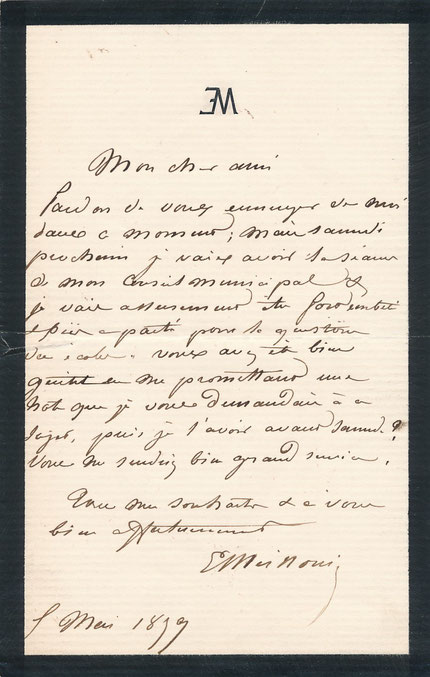 EM
Mon cher ami
Pardon de vous ennuyer de moi
dans ce moment ; mais samedi
prochain je vais avoir la séance
de mon Conseil municipal &
je vais assurement être
à partie pour la question
des écoles. vous avez été bien
gentil en me promettant une
note que je vous demandais à ce
sujet, puis je l'avoir avant samedi ?
Vous me rendriez bien grand service.
Tous mes souhaits & à vous
bien affectueusement
EMeissonier
5 Mai 1879